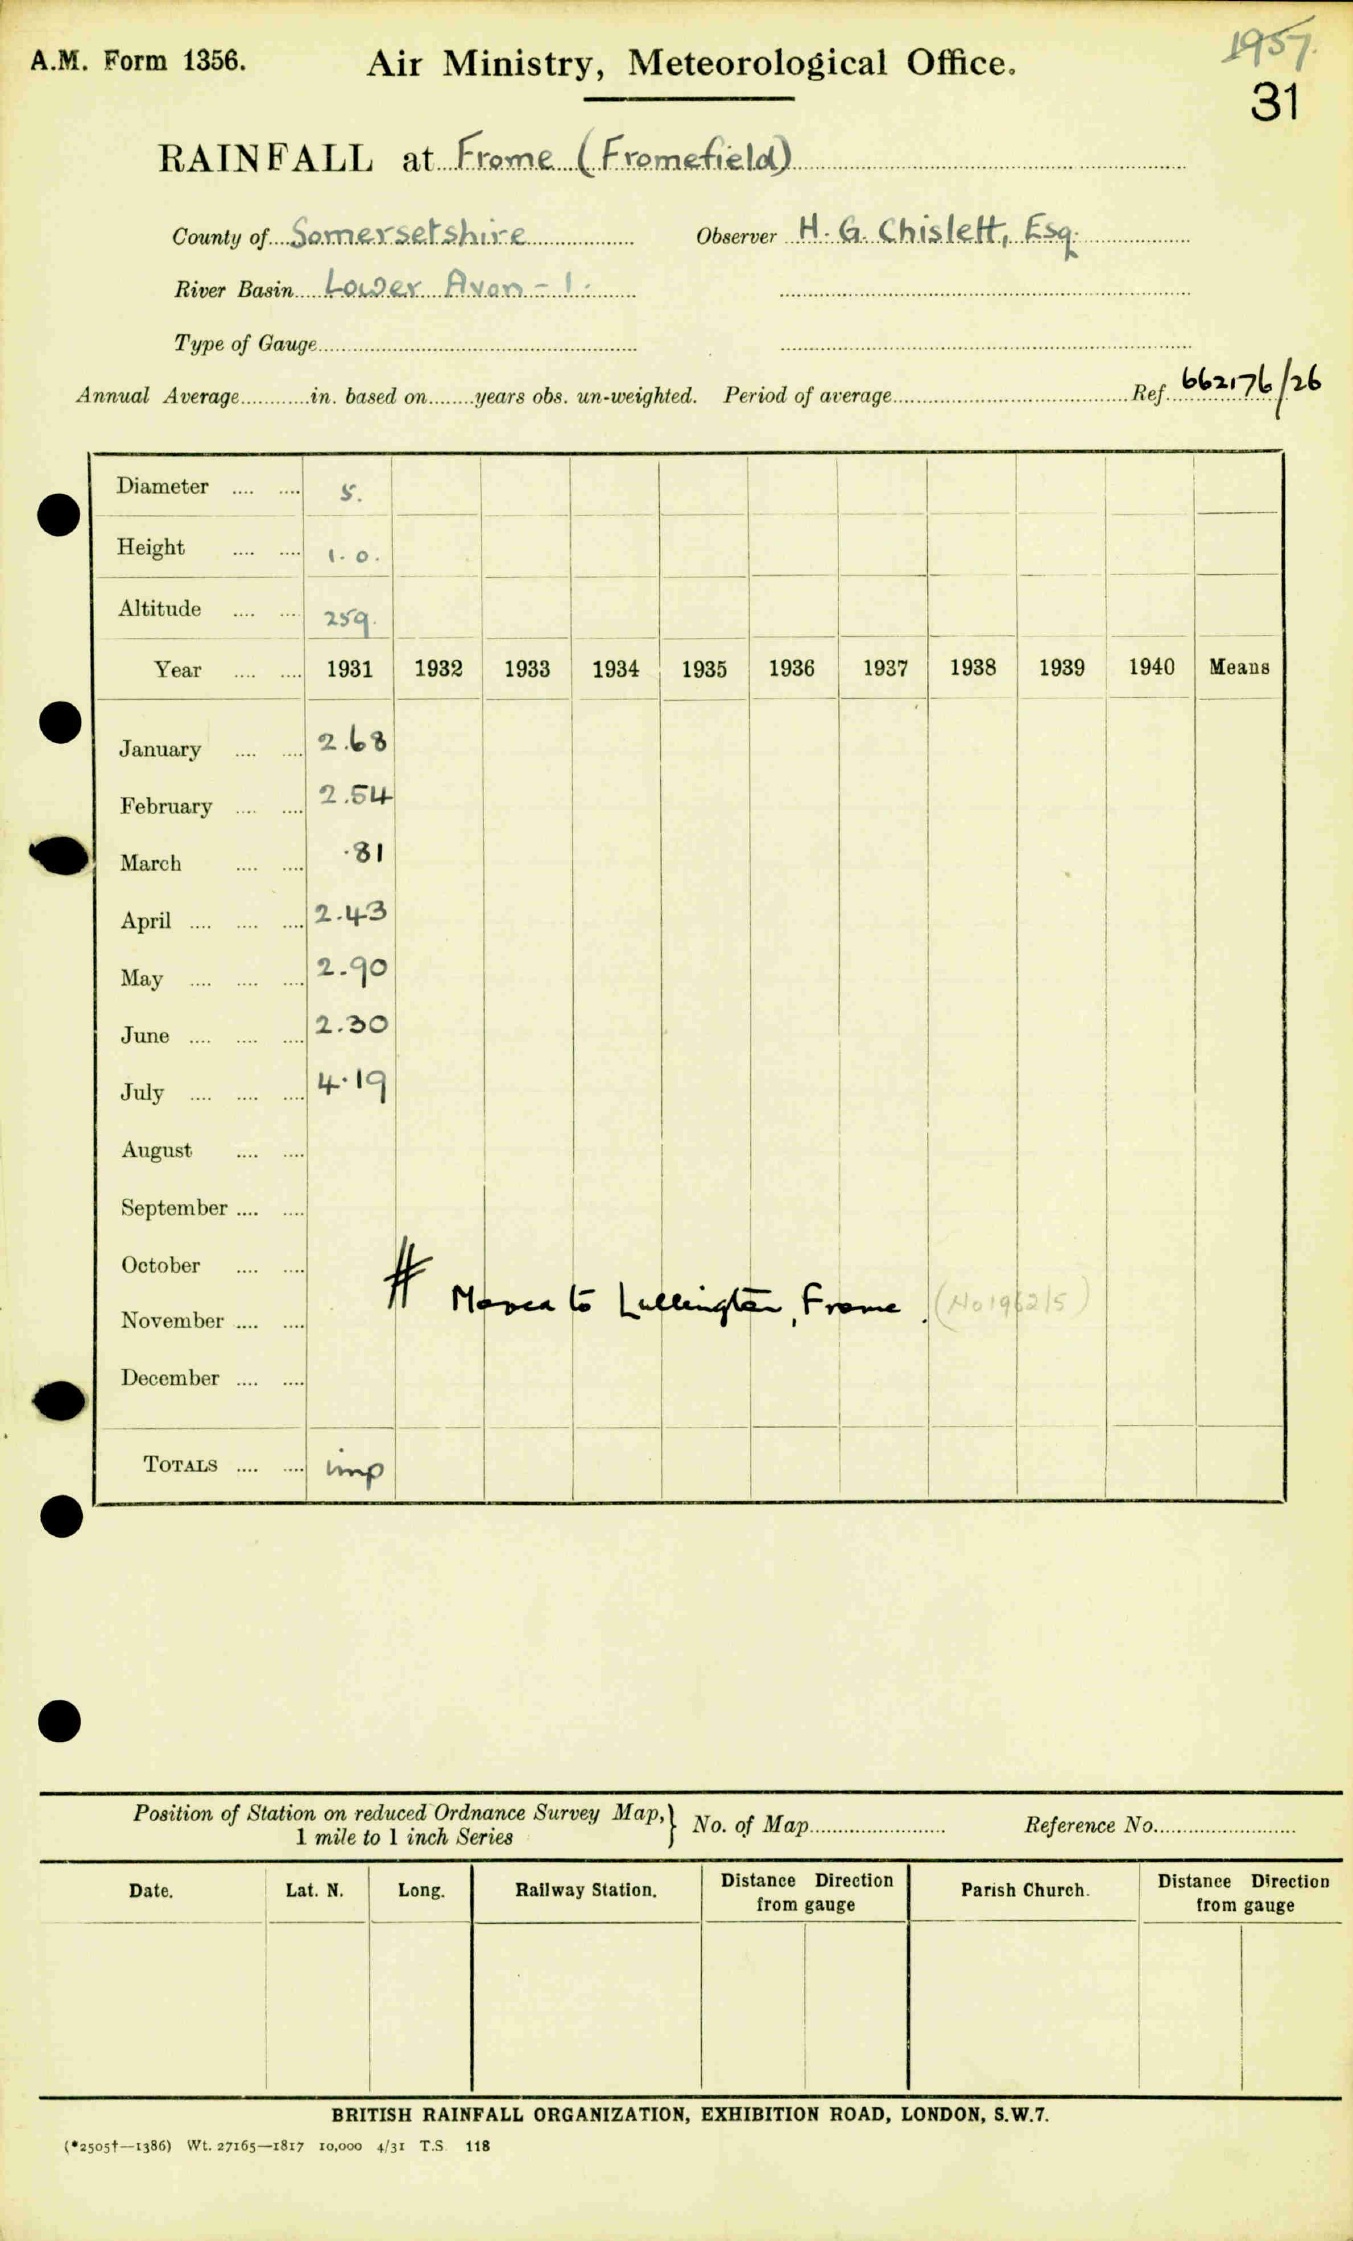 1957.
A.M. Form 1356. Air Ministry, Meteorological Office.
31
RAINFALL at Frome (Fromefield)
County of Somersetshire Observer H. G. Chislett, Esq.
River Basin Lower Avon - 1.
Type of Gauge
Annual Average in. based on years obs. un-weighted. Period of average Ref. 662176/26
Diameter 5.
Height 1.0.
Altitude 259.
Year 1931 1932 1933 1934 1935 1936 1937 1938 1939 1940 Means
January 2.68
February 2.54
March .81
April 2.43
May 2.90
June 2.30
July 4.19
August
September
October
# Moved to Lullington, Frome. (No 1962/5)
November
December
TOTALS imp
Position of Station on reduced Ordnance Survey Map,} No. of Map Reference No.
1 mile to 1 inch Series
Date. Lat. N. Long. Railway Station. Distance Direction from gauge Parish Church. Distance Direction from gauge
BRITISH RAINFALL ORGANIZATION, EXHIBITION ROAD, LONDON, S.W.7.
(*2505†—1386) Wt. 27165—1817 10,000 4/31 T.S. 118